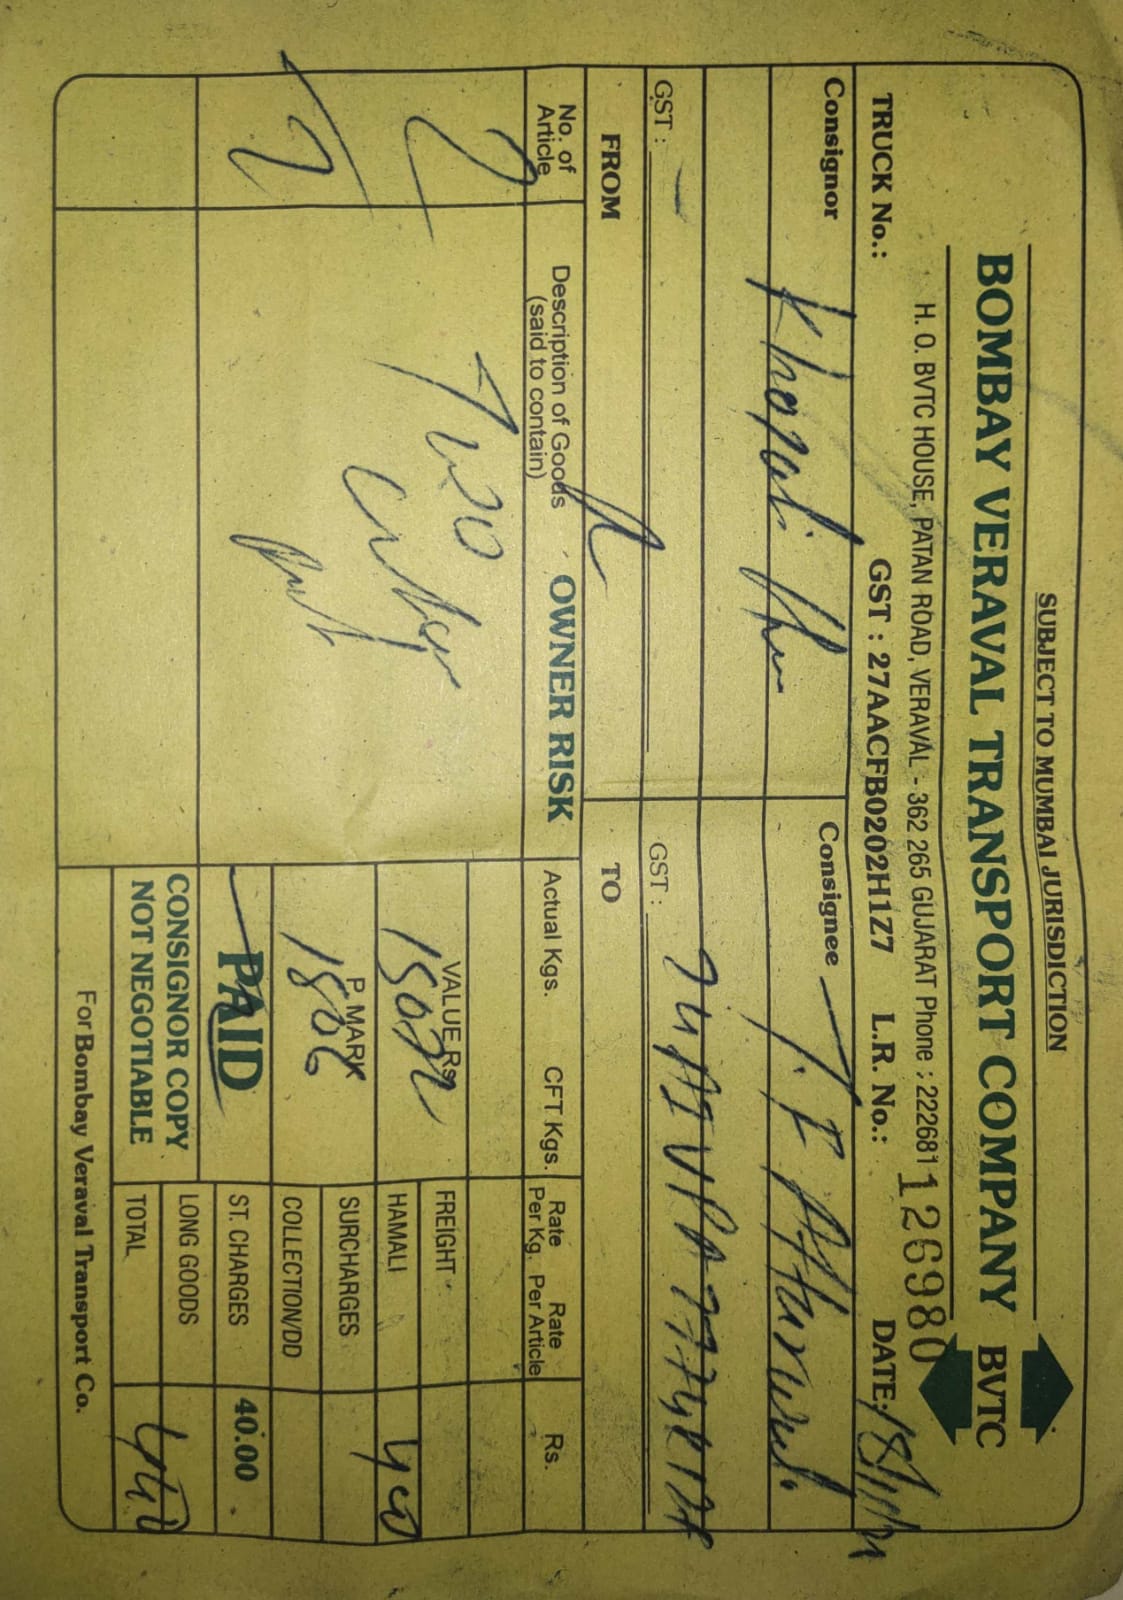 SUBJECT TO MUMBAI JURISDICTION
BOMBAY VERAVAL TRANSPORT COMPANY
BVTC
H. O. BVTC HOUSE, PATAN ROAD, VERAVAL - 362 265 GUJARAT Phone : 222681
126980
TRUCK No.: GST : 27AACFB0202H1Z7 L.R. No.: DATE:
Consignor Khopoli
Consignee
GST :
GST :
FROM TO
No. of Article
Description of Goods (said to contain)
OWNER RISK
Actual Kgs. CFT Kgs.
Rate Per Kg. Rate Per Article Rs.
2
Two
VALUE Rs.
P. MARK
1806
PAID
CONSIGNOR COPY
NOT NEGOTIABLE
FREIGHT
HAMALI 400
SURCHARGES
COLLECTION/DD
ST. CHARGES 40.00
LONG GOODS
TOTAL 440
For Bombay Veraval Transport Co.